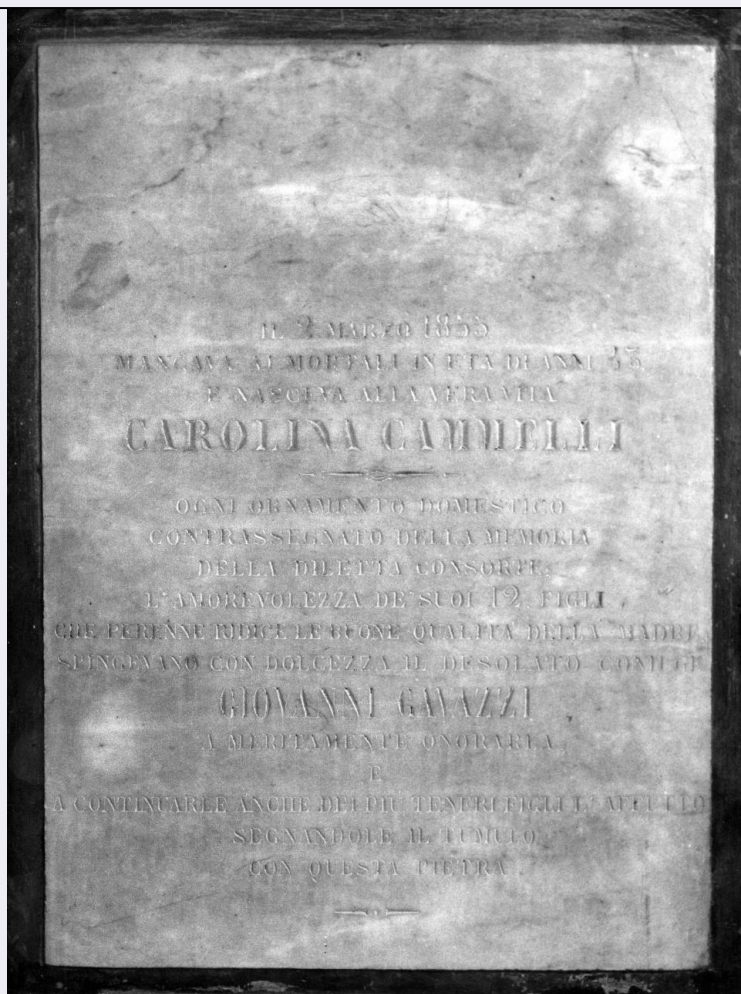 IL 2 MARZO 1855
MANCAVA AI MORTALI IN ETÀ DI ANNI 43
E NASCEVA ALLA VERA VITA
CAROLINA CAMMELLI
OGNI ORNAMENTO DOMESTICO
CONTRASSEGNATO DELLA MEMORIA
DELLA DILETTA CONSORTE:
L'AMOREVOLEZZA DE' SUOI 12 FIGLI,
CHE PERENNE RIDICE LE BUONE QUALITÀ DELLA MADRE,
SPINGEVANO CON DOLCEZZA IL DESOLATO CONIUGE
GIOVANNI GAVAZZI
A MERITAMENTE ONORARLA,
E
A CONTINUARLE ANCHE DEI PIÙ TENERI FIGLI L'AFFETTO
SEGNANDOLE IL TUMULO
CON QUESTA PIETRA.